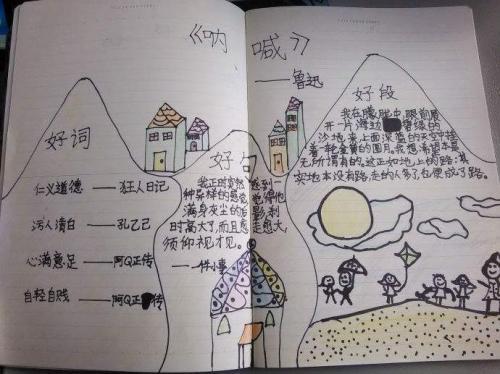 《呐喊》
——鲁迅
好词
仁义道德——狂人日记
污人清白——孔乙己
心满意足——阿Q正传
自轻自贱——阿Q正传
好句
我正时突然感到一
种异样的感觉,觉得他
满身灰尘的后影,刹
时高大了,而且愈走愈大,
须仰视才见。
——一件小事
好段
我在朦胧中,眼前展
开一片海 碧绿的
沙地,来上面深蓝的天空中挂
着一轮金黄的圆月。我想:希望本是
无所谓有的,这正如地上的路;其
实地本没有路,走的人多了,也便成了路。